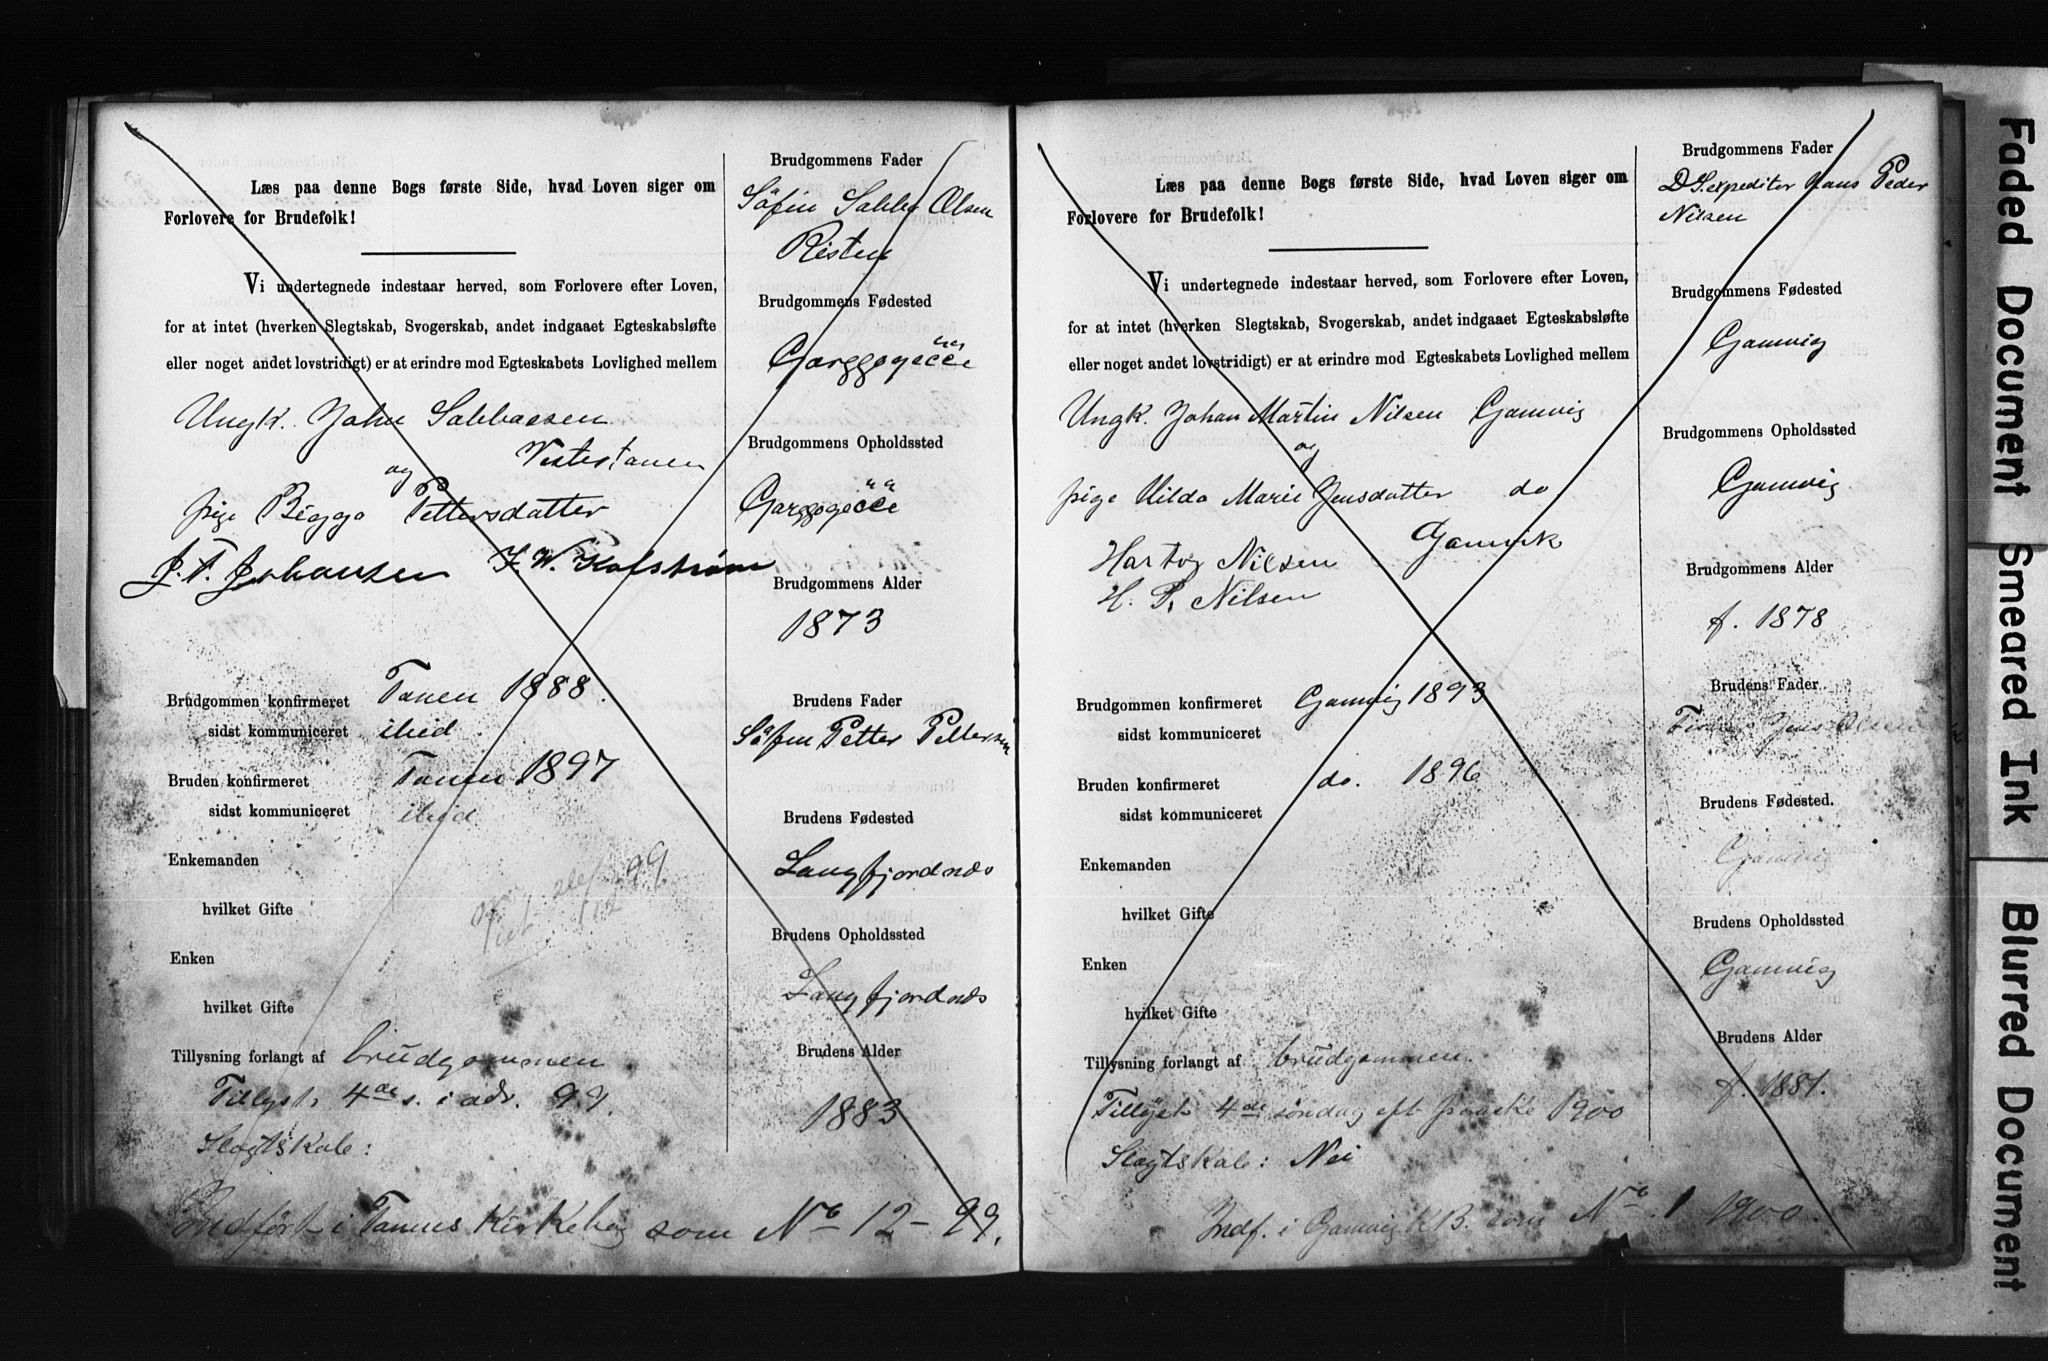 Læs paa denne Bogs første Side, hvad Loven siger om
Forlovere for Brudefolk!
Vi undertegnede indestaar herved, som Forlovere efter Loven,
for at intet (hverken Slegtskab, Svogerskab, andet indgaaet Egteskabsløfte
eller noget andet lovstridigt) er at erindre mod Egteskabets Lovlighed mellem
Ungk. John Sabbasen
Vestertanen
og
pige Bigga Pettersdatter
J. F. Johansen
Brudgommen konfirmeret Tanen 1888.
sidst kommuniceret ibid
Bruden konfirmeret Tanen 1897
sidst kommuniceret ibid
Enkemanden
hvilket Gifte
Enken
hvilket Gifte
Tillysning forlangt af brudgommen
Tillyst 4de s. i adv. 99.
Slegtskab:
Indført i Tanens Kirkebog som No 12-99.
Brudgommens Fader
Söfin Sabba Olsen
Risten
Brudgommens Fødested
Brudgommens Opholdssted
Brudgommens Alder
1873
Brudens Fader
Söfin Petter Pettersen
Brudens Fødested
Langfjordnæs
Brudens Opholdssted
Langfjordnæs
Brudens Alder
1883
Læs paa denne Bogs første Side, hvad Loven siger om
Forlovere for Brudefolk!
Vi undertegnede indestaar herved, som Forlovere efter Loven,
for at intet (hverken Slegtskab, Svogerskab, andet indgaaet Egteskabsløfte
eller noget andet lovstridigt) er at erindre mod Egteskabets Lovlighed mellem
Ungk. Johan Martin Nilsen Gamvig
og
pige Hilda Marie Jensdatter do
Gamvik
Hartvig Nilsen
H. P. Nilsen
Brudgommen konfirmeret Gamvig 1893
sidst kommuniceret
Bruden konfirmeret do. 1896
sidst kommuniceret
Enkemanden
hvilket Gifte
Enken
hvilket Gifte
Tillysning forlangt af brudgommen.
Tillyst 4de søndag eft. paaske 1900
Slegtskab: Nei
Indf. i Gamvig KB. som No. 1 1900.
Brudgommens Fader
D.S.expeditør Hans Peder
Nilsen
Brudgommens Fødested
Gamvig
Brudgommens Opholdssted
Gamvig
Brudgommens Alder
f. 1878
Brudens Fader
Jens Olsen
Brudens Fødested.
Gamvig
Brudens Opholdssted
Gamvig
Brudens Alder
f. 1881.
Faded Document
Smeared Ink
Blurred Document